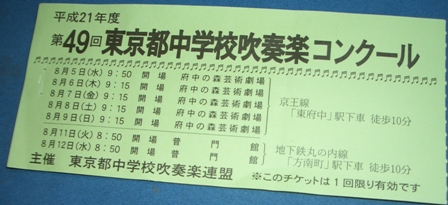 平成21年度
第49回東京都中学校吹奏楽コンクール
8月5日(水) 9:50 開場 府中の森芸術劇場
8月6日(木) 9:15 開場 府中の森芸術劇場
8月7日(金) 9:15 開場 府中の森芸術劇場
8月8日(土) 9:15 開場 府中の森芸術劇場
8月9日(日) 9:15 開場 府中の森芸術劇場
京王線
「東府中」駅下車 徒歩10分
8月11日(火) 8:50 開場 普門館
8月12日(水) 8:50 開場 普門館
地下鉄丸の内線
「方南町」駅下車 徒歩10分
主催 東京都中学校吹奏楽連盟
※このチケットは1回限り有効です